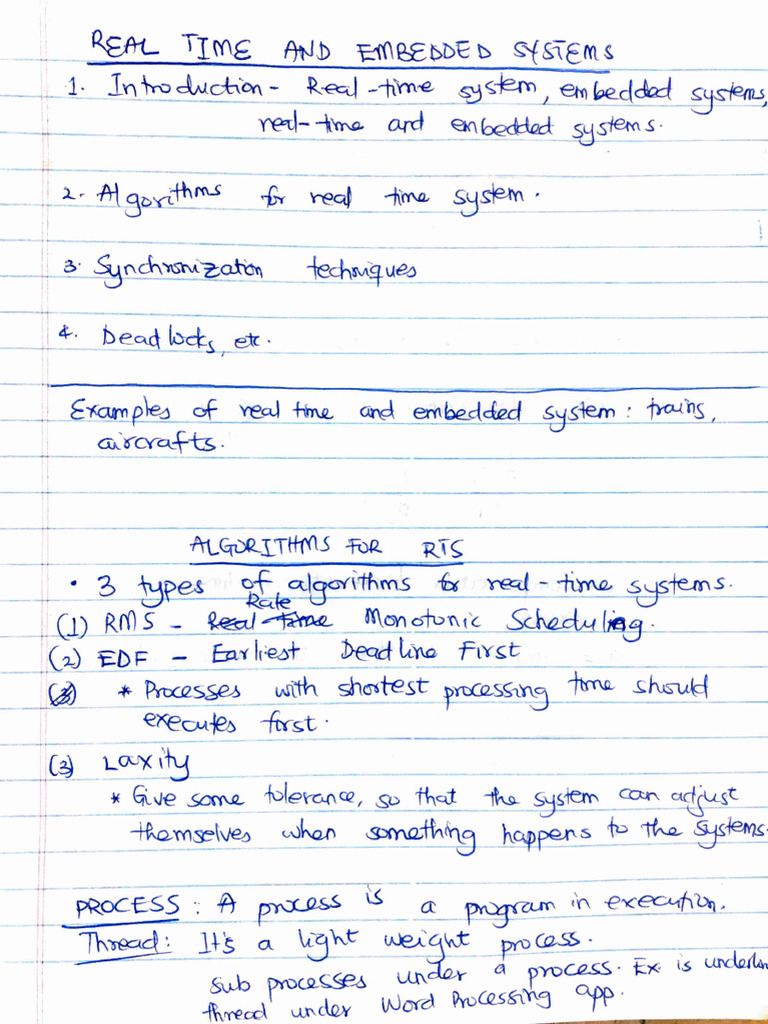 REAL TIME AND EMBEDDED SYSTEMS
1. Introduction - Real-time system, embedded systems,
real-time and embedded systems.
2. Algorithms for real time system.
3. Synchronization techniques
4. Deadlocks, etc.
Examples of real time and embedded system: trains,
aircrafts.
ALGORITHMS FOR RTS
• 3 types of algorithms for real-time systems.
Rate
(1) RMS - Real-time Monotonic Scheduling.
(2) EDF - Earliest Deadline First
(3) * Processes with shortest processing time should
executes first.
(3) Laxity
* Give some tolerance, so that the system can adjust
themselves when something happens to the systems.
PROCESS: A process is a program in execution.
Thread: It's a light weight process.
sub processes under a process. Ex is underline
thread under Word Processing app.